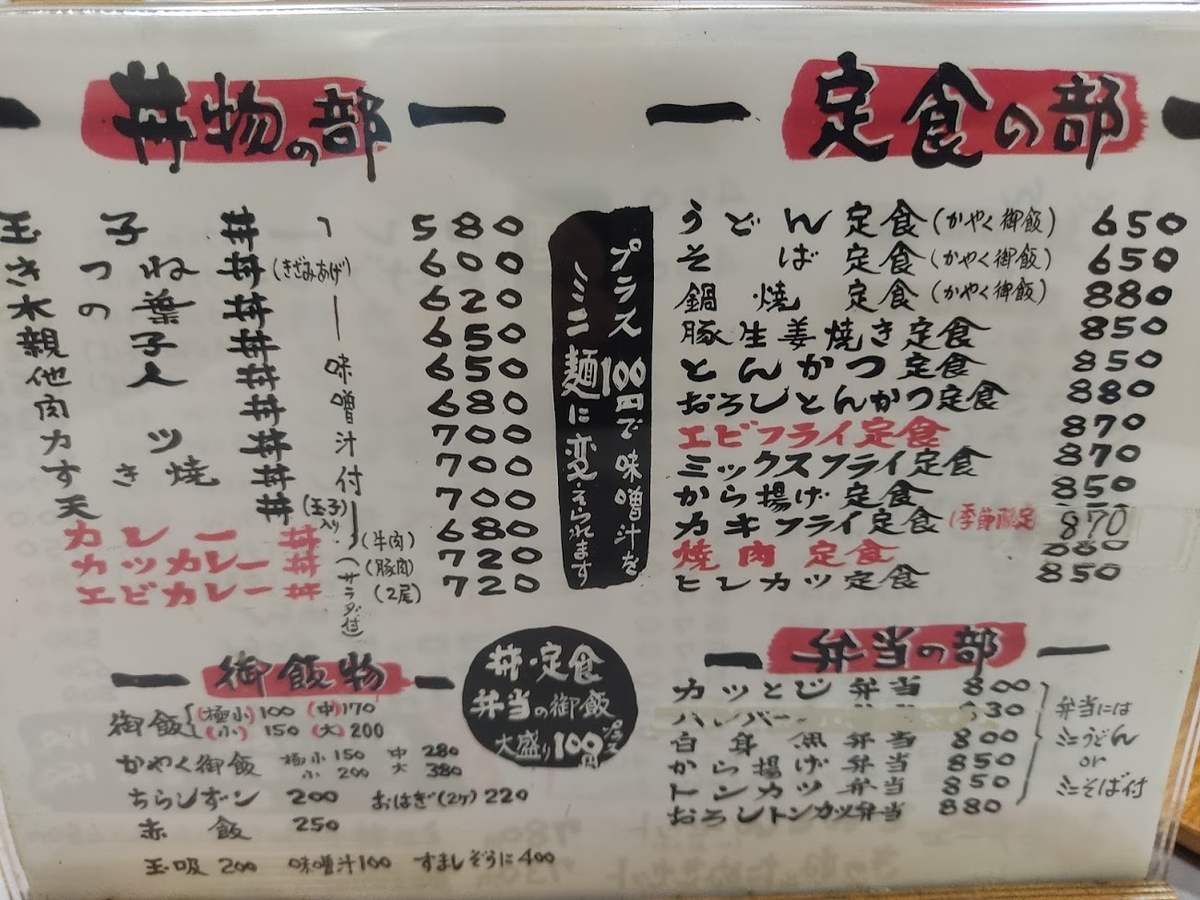 丼物の部
玉子丼 580
きつね丼(きざみあげ) 600
木の葉丼 620
親子丼 650
他人丼 650
肉丼 680
カツ丼 700
すき焼丼(玉子入り) 700
天丼 700
味噌汁付
カレー丼(牛肉) 680
カツカレー丼(豚肉) 720
エビカレー丼(2尾) 720
(サラダ付)
プラス100円で味噌汁を
ミニ麺に変えられます
定食の部
うどん定食(かやく御飯) 650
そば定食(かやく御飯) 650
鍋焼定食(かやく御飯) 880
豚生姜焼き定食 850
とんかつ定食 850
おろしとんかつ定食 880
エビフライ定食 870
ミックスフライ定食 870
から揚げ定食 850
カキフライ定食(季節限定 870
焼肉定食 880
ヒレカツ定食 850
御飯物
御飯 (極小)100 (中)170
(小)150 (大)200
かやく御飯 極小150 中280
小200 大380
ちらしずし 200 おはぎ(2ケ)220
赤飯 250
玉吸 200 味噌汁100 すましぞうに400
丼・定食
弁当の御飯
大盛り100円プラス
弁当の部
カツとじ弁当 800
ハンバー 830
白身魚弁当 800
から揚げ弁当 850
トンカツ弁当 850
おろしトンカツ弁当 880
弁当には
ミニうどん
or
ミニそば付